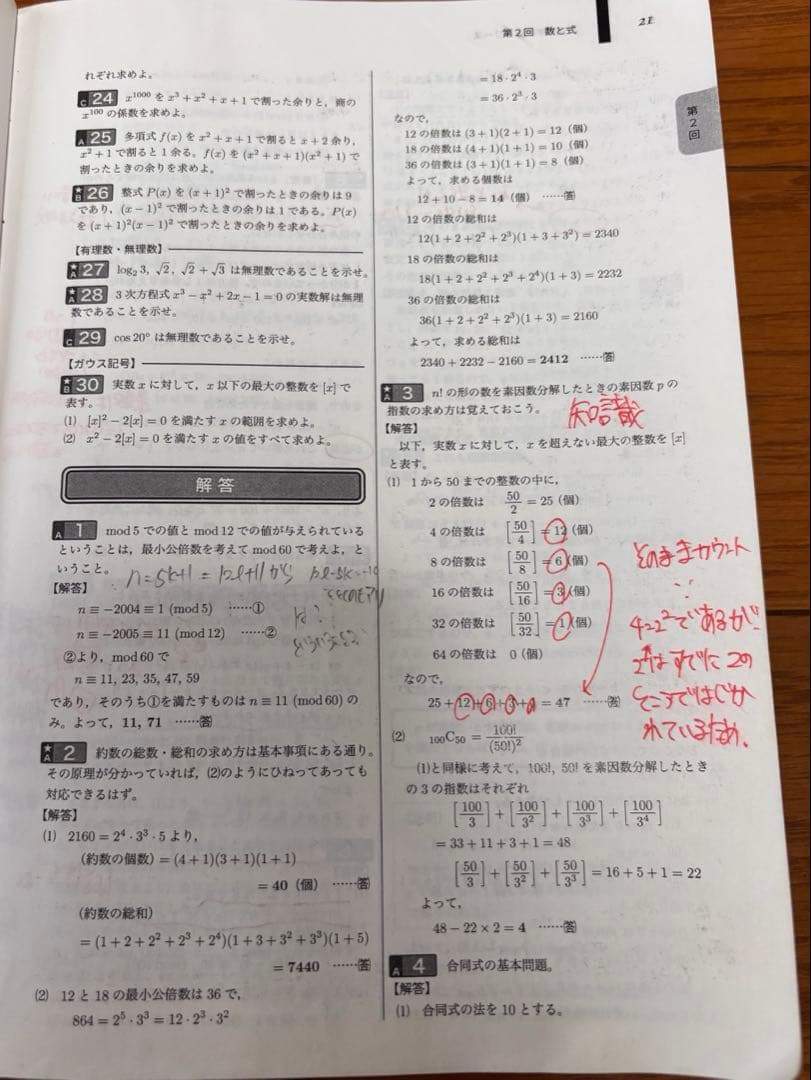 第2回 数と式
21
第2回
れぞれ求めよ。
C 24 x^1000 を x^3+x^2+x+1 で割った余りと，商の
x^100 の係数を求めよ。
A 25 多項式 f(x) を x^2+x+1 で割ると x+2 余り，
x^2+1 で割ると 1 余る。f(x) を (x^2+x+1)(x^2+1) で
割ったときの余りを求めよ。
★B 26 整式 P(x) を (x+1)^2 で割ったときの余りは 9
であり，(x-1)^2 で割ったときの余りは 1 である。P(x)
を (x+1)^2(x-1)^2 で割ったときの余りを求めよ。
【有理数・無理数】
★A 27 log_2 3, √2, √2+√3 は無理数であることを示せ。
★A 28 3次方程式 x^3-x^2+2x-1=0 の実数解は無理
数であることを示せ。
C 29 cos20° は無理数であることを示せ。
【ガウス記号】
★B 30 実数 x に対して，x 以下の最大の整数を [x] で
表す。
(1) [x]^2-2[x]=0 を満たす x の範囲を求めよ。
(2) x^2-2[x]=0 を満たす x の値をすべて求めよ。
解答
A 1 mod 5 での値と mod 12 での値が与えられている
ということは，最小公倍数を考えて mod 60 で考えよ，と
いうこと。
n=5k+1=12l+11から
【解答】
n≡-2004≡1 (mod 5) ……①
n≡-2005≡11 (mod 12) ……②
②より，mod 60 で
n≡11, 23, 35, 47, 59
であり，そのうち①を満たすものは n≡11 (mod 60) の
み。よって，11, 71 ……答
★A 2 約数の総数・総和の求め方は基本事項にある通り。
その原理が分かっていれば，(2)のようにひねってあっても
対応できるはず。
【解答】
(1) 2160=2^4・3^3・5 より，
(約数の個数)=(4+1)(3+1)(1+1)
=40 (個) ……答
(約数の総和)
=(1+2+2^2+2^3+2^4)(1+3+3^2+3^3)(1+5)
=7440 ……答
(2) 12 と 18 の最小公倍数は 36 で，
864=2^5・3^3=12・2^3・3^2
=18・2^4・3
=36・2^3・3
なので，
12 の倍数は (3+1)(2+1)=12 (個)
18 の倍数は (4+1)(1+1)=10 (個)
36 の倍数は (3+1)(1+1)=8 (個)
よって，求める個数は
12+10-8=14 (個) ……答
12 の倍数の総和は
12(1+2+2^2+2^3)(1+3+3^2)=2340
18 の倍数の総和は
18(1+2+2^2+2^3+2^4)(1+3)=2232
36 の倍数の総和は
36(1+2+2^2+2^3)(1+3)=2160
よって，求める総和は
2340+2232-2160=2412 ……答
★A 3 n! の形の数を素因数分解したときの素因数 p の
指数の求め方は覚えておこう。
知識
【解答】
以下，実数 x に対して，x を超えない最大の整数を [x]
と表す。
(1) 1 から 50 までの整数の中に，
2 の倍数は 50/2=25 (個)
4 の倍数は [50/4]=12 (個)
8 の倍数は [50/8]=6 (個)
16 の倍数は [50/16]=3 (個)
32 の倍数は [50/32]=1 (個)
64 の倍数は 0 (個)
なので，
25+12+6+3+1=47 ……答
そのままカウント
∵
4=2^2であるが
すでに2の
ところではじか
れているため。
(2) 100C50=100!/(50!)^2
(1)と同様に考えて，100!, 50! を素因数分解したとき
の 3 の指数はそれぞれ
[100/3]+[100/3^2]+[100/3^3]+[100/3^4]
=33+11+3+1=48
[50/3]+[50/3^2]+[50/3^3]=16+5+1=22
よって，
48-22×2=4 ……答
A 4 合同式の基本問題。
【解答】
(1) 合同式の法を 10 とする。